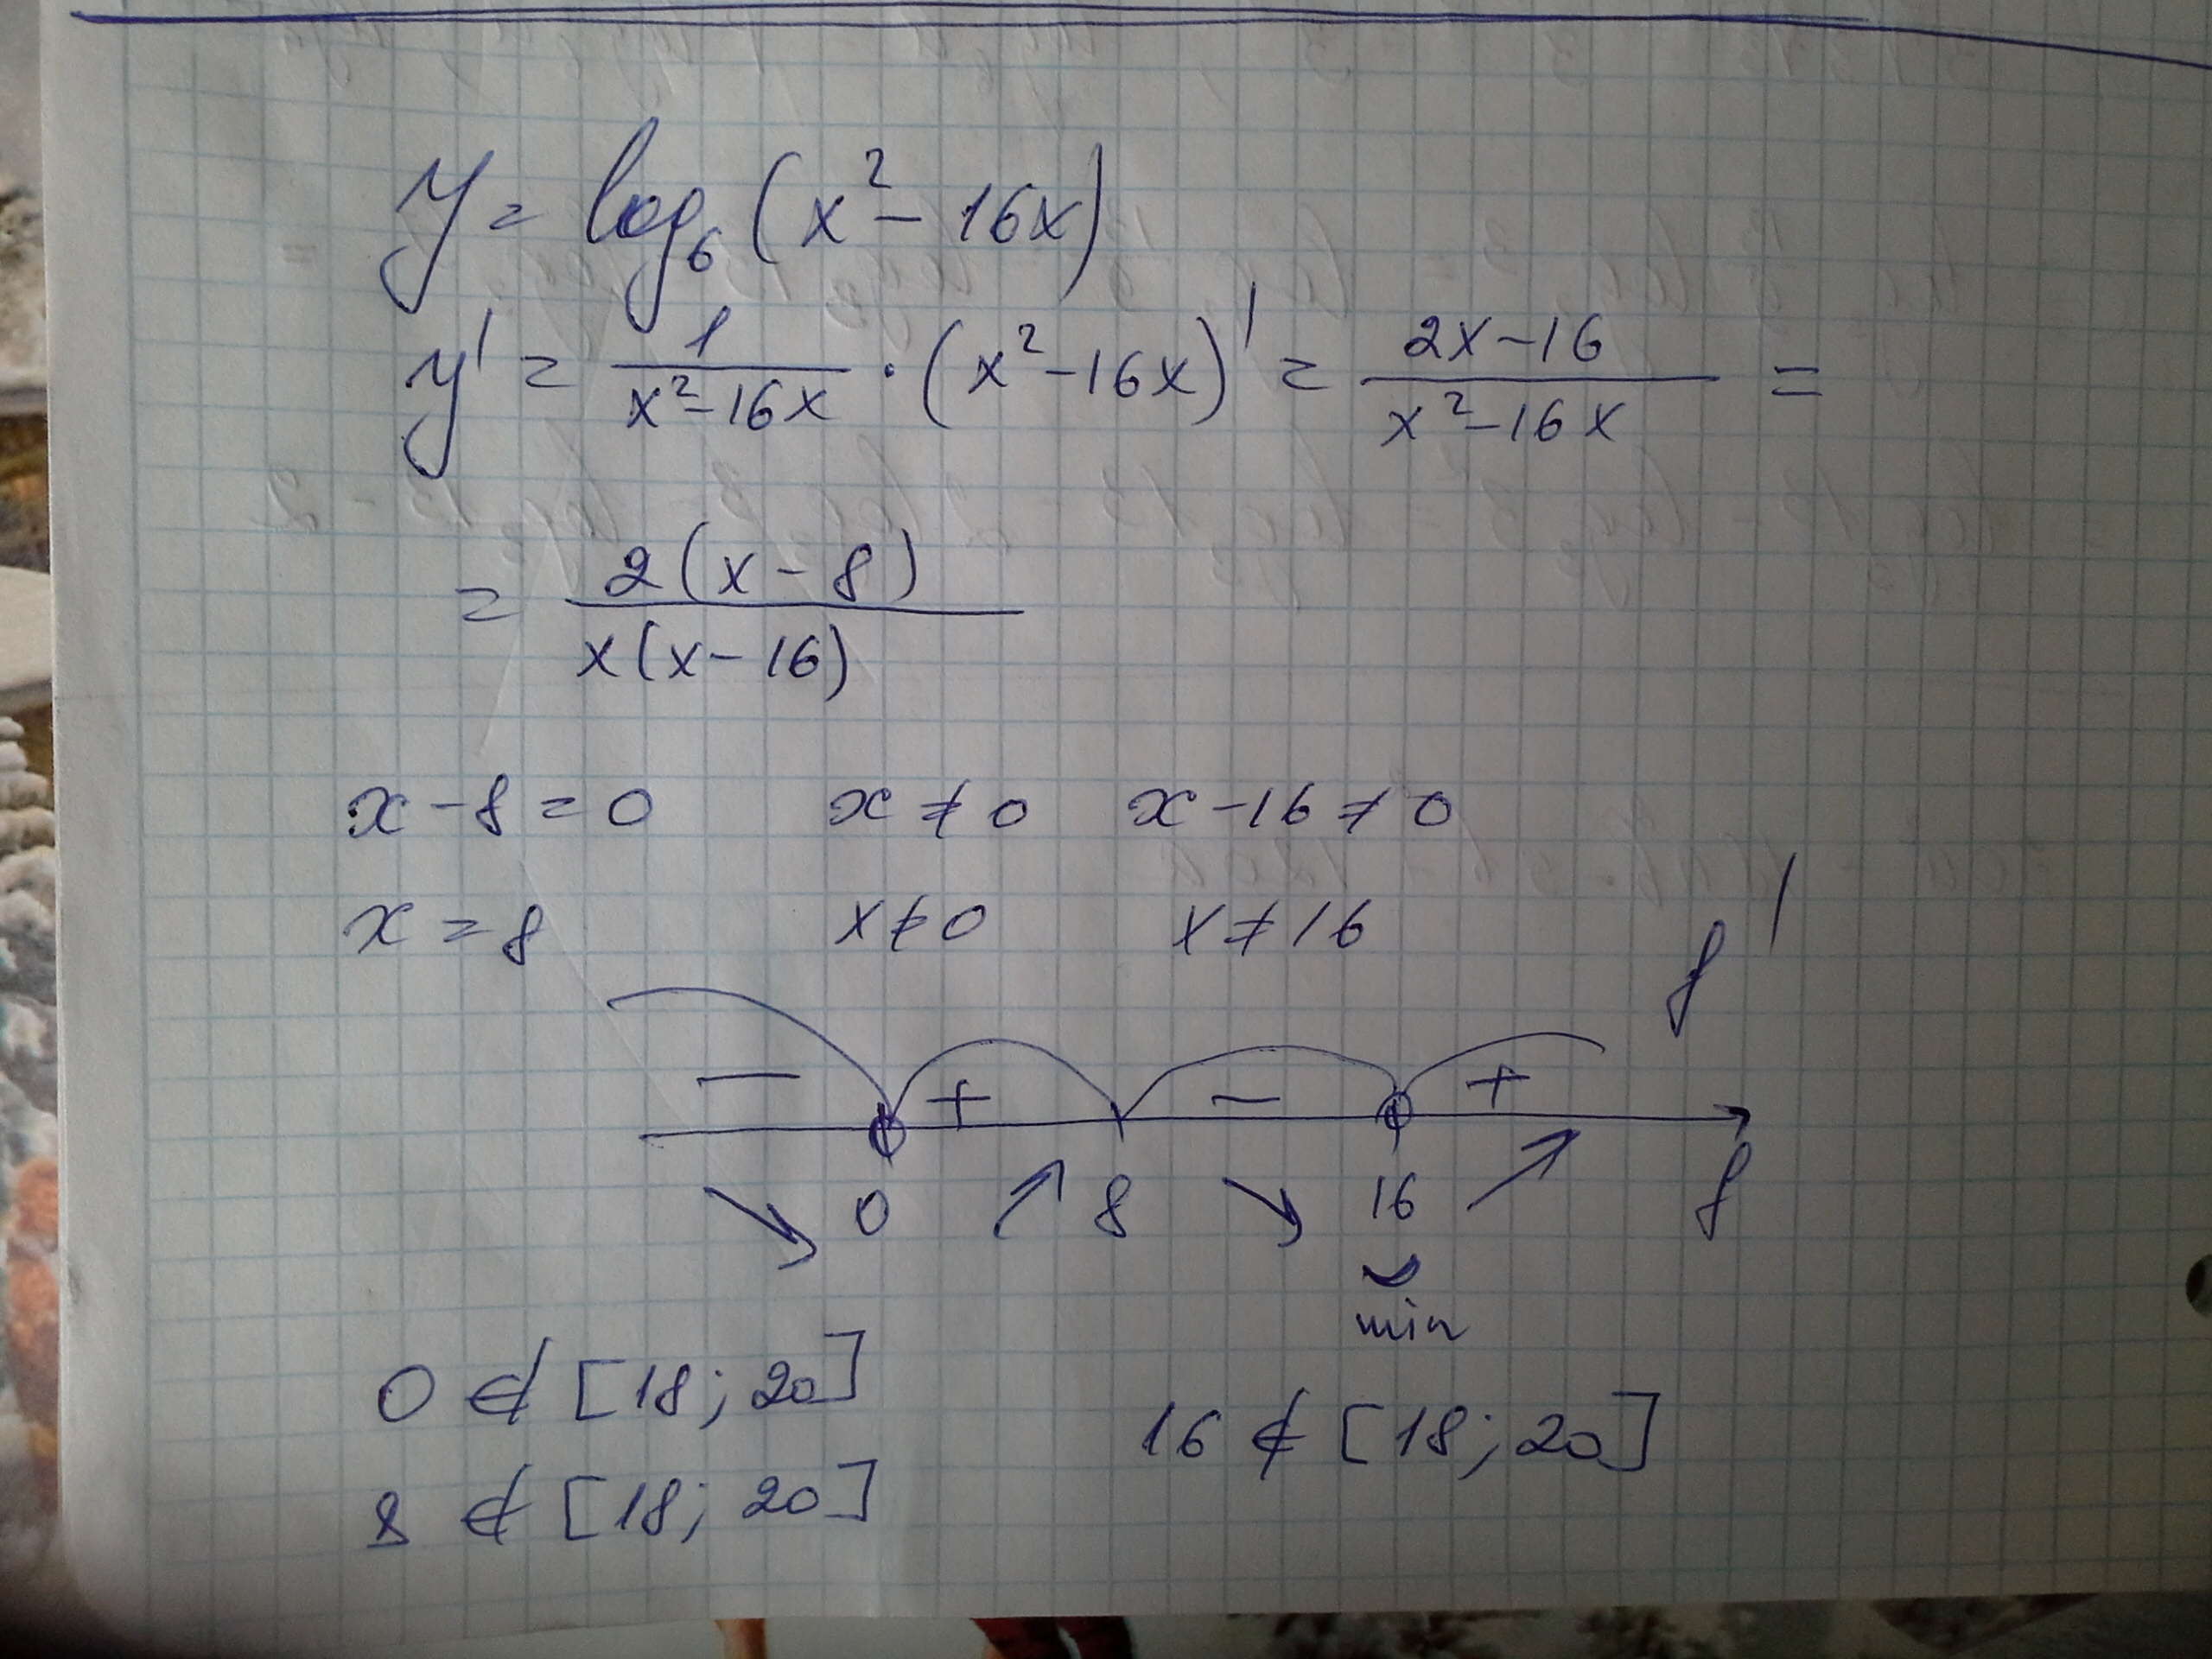 y = log₆(x² - 16x)
y' = 1/(x² - 16x) · (x² - 16x)' = (2x - 16)/(x² - 16x) =
= 2(x - 8)/(x(x - 16))
x - 8 = 0 x ≠ 0 x - 16 ≠ 0
x = 8 x ≠ 0 x ≠ 16
f'
- + - +
0 8 16 f
min
0 ∉ [18; 20]
16 ∉ [18; 20]
8 ∉ [18; 20]